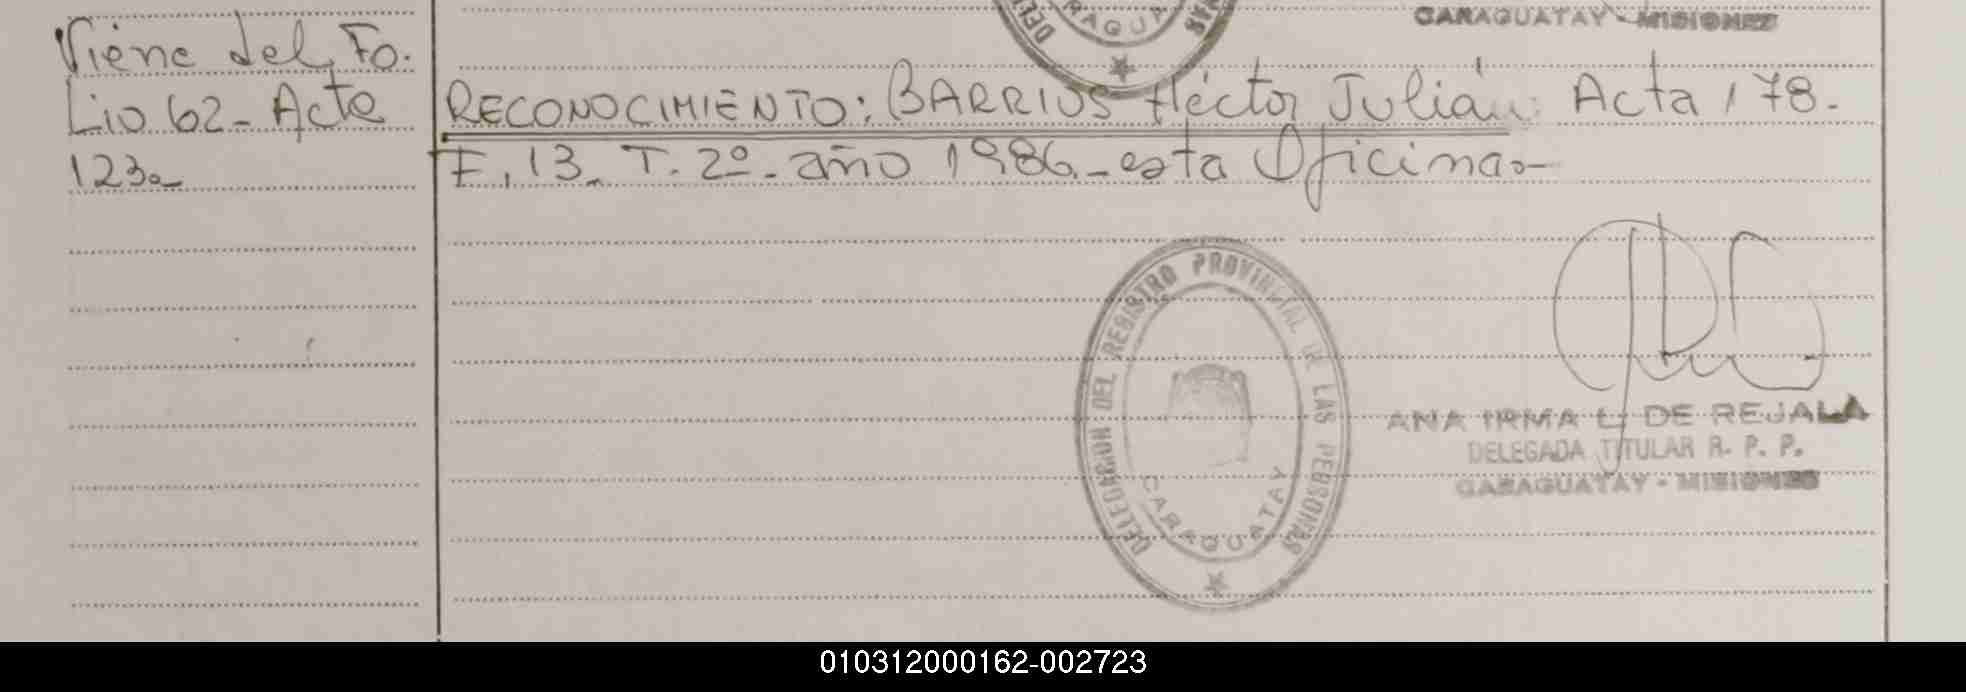 CARAGUATAY - MISIONES
CARAGUA
Viene del Fo.
Lio 62 - Acta
123.-
RECONOCIMIENTO: BARRIOS Héctor Julián: Acta 178.
F. 13. T. 2º - año 1986 - esta Oficina.-
DELEGACION DEL REGISTRO PROVINCIAL DE LAS PERSONAS
CARAGUATAY
ANA IRMA L. DE REJALA
DELEGADA TITULAR R. P. P.
CARAGUATAY - MISIONES
010312000162-002723